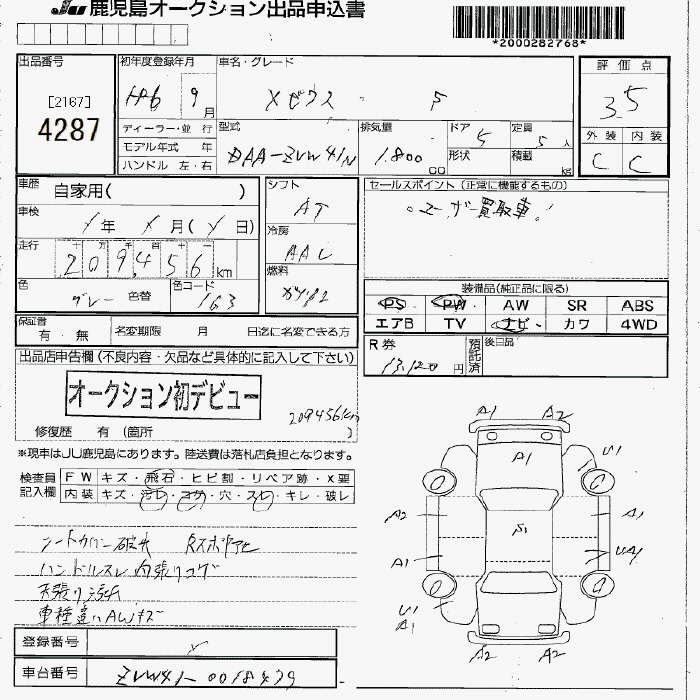 JU 鹿児島オークション出品申込書
*2000282768*
出品番号
[2167]
4287
初年度登録年月
H26 9月
ディーラー・並行
モデル年式 年
ハンドル 左・右
車名・グレード
メビウス S
型式
DAA-ZVW41N
排気量
1.800 CC
ドア 5
形状
定員 5人
積載 kg
評価点
3.5
外装 内装
C C
車歴 自家用( )
車検 年 月( 日)
走行 十 万 千 百 十
209456 km
色 グレー 色替
色コード 163
シフト
AT
冷房
AAC
燃料
セールスポイント(正常に機能するもの)
○ユーザー買取車!
装備品(純正品に限る)
PS PW AW SR ABS
エアB TV ナビ カワ 4WD
保証書
有・無
名変期限 月 日迄に名変できる方
R券
13.120円
預託済
後日品
出品店申告欄(不良内容・欠品など具体的に記入して下さい)
オークション初デビュー
209456km
修復歴 有 (箇所 )
※現車はJU鹿児島にあります。陸送費は落札店負担となります。
検査員記入欄
FW キズ・飛石・ヒビ割・リペア跡・X要
内装 キズ・汚れ・コゲ・穴・スレ・キレ・破レ
シートカバー破れ
ハンドルスレ 内張りコゲ
天張り汚れ
車種違いAWキズ
登録番号
車台番号 ZVW41-0018479
A1 A2
A1
U1
A1
A2 S1 A1
A1 UA1
U1
A1
A2 A2